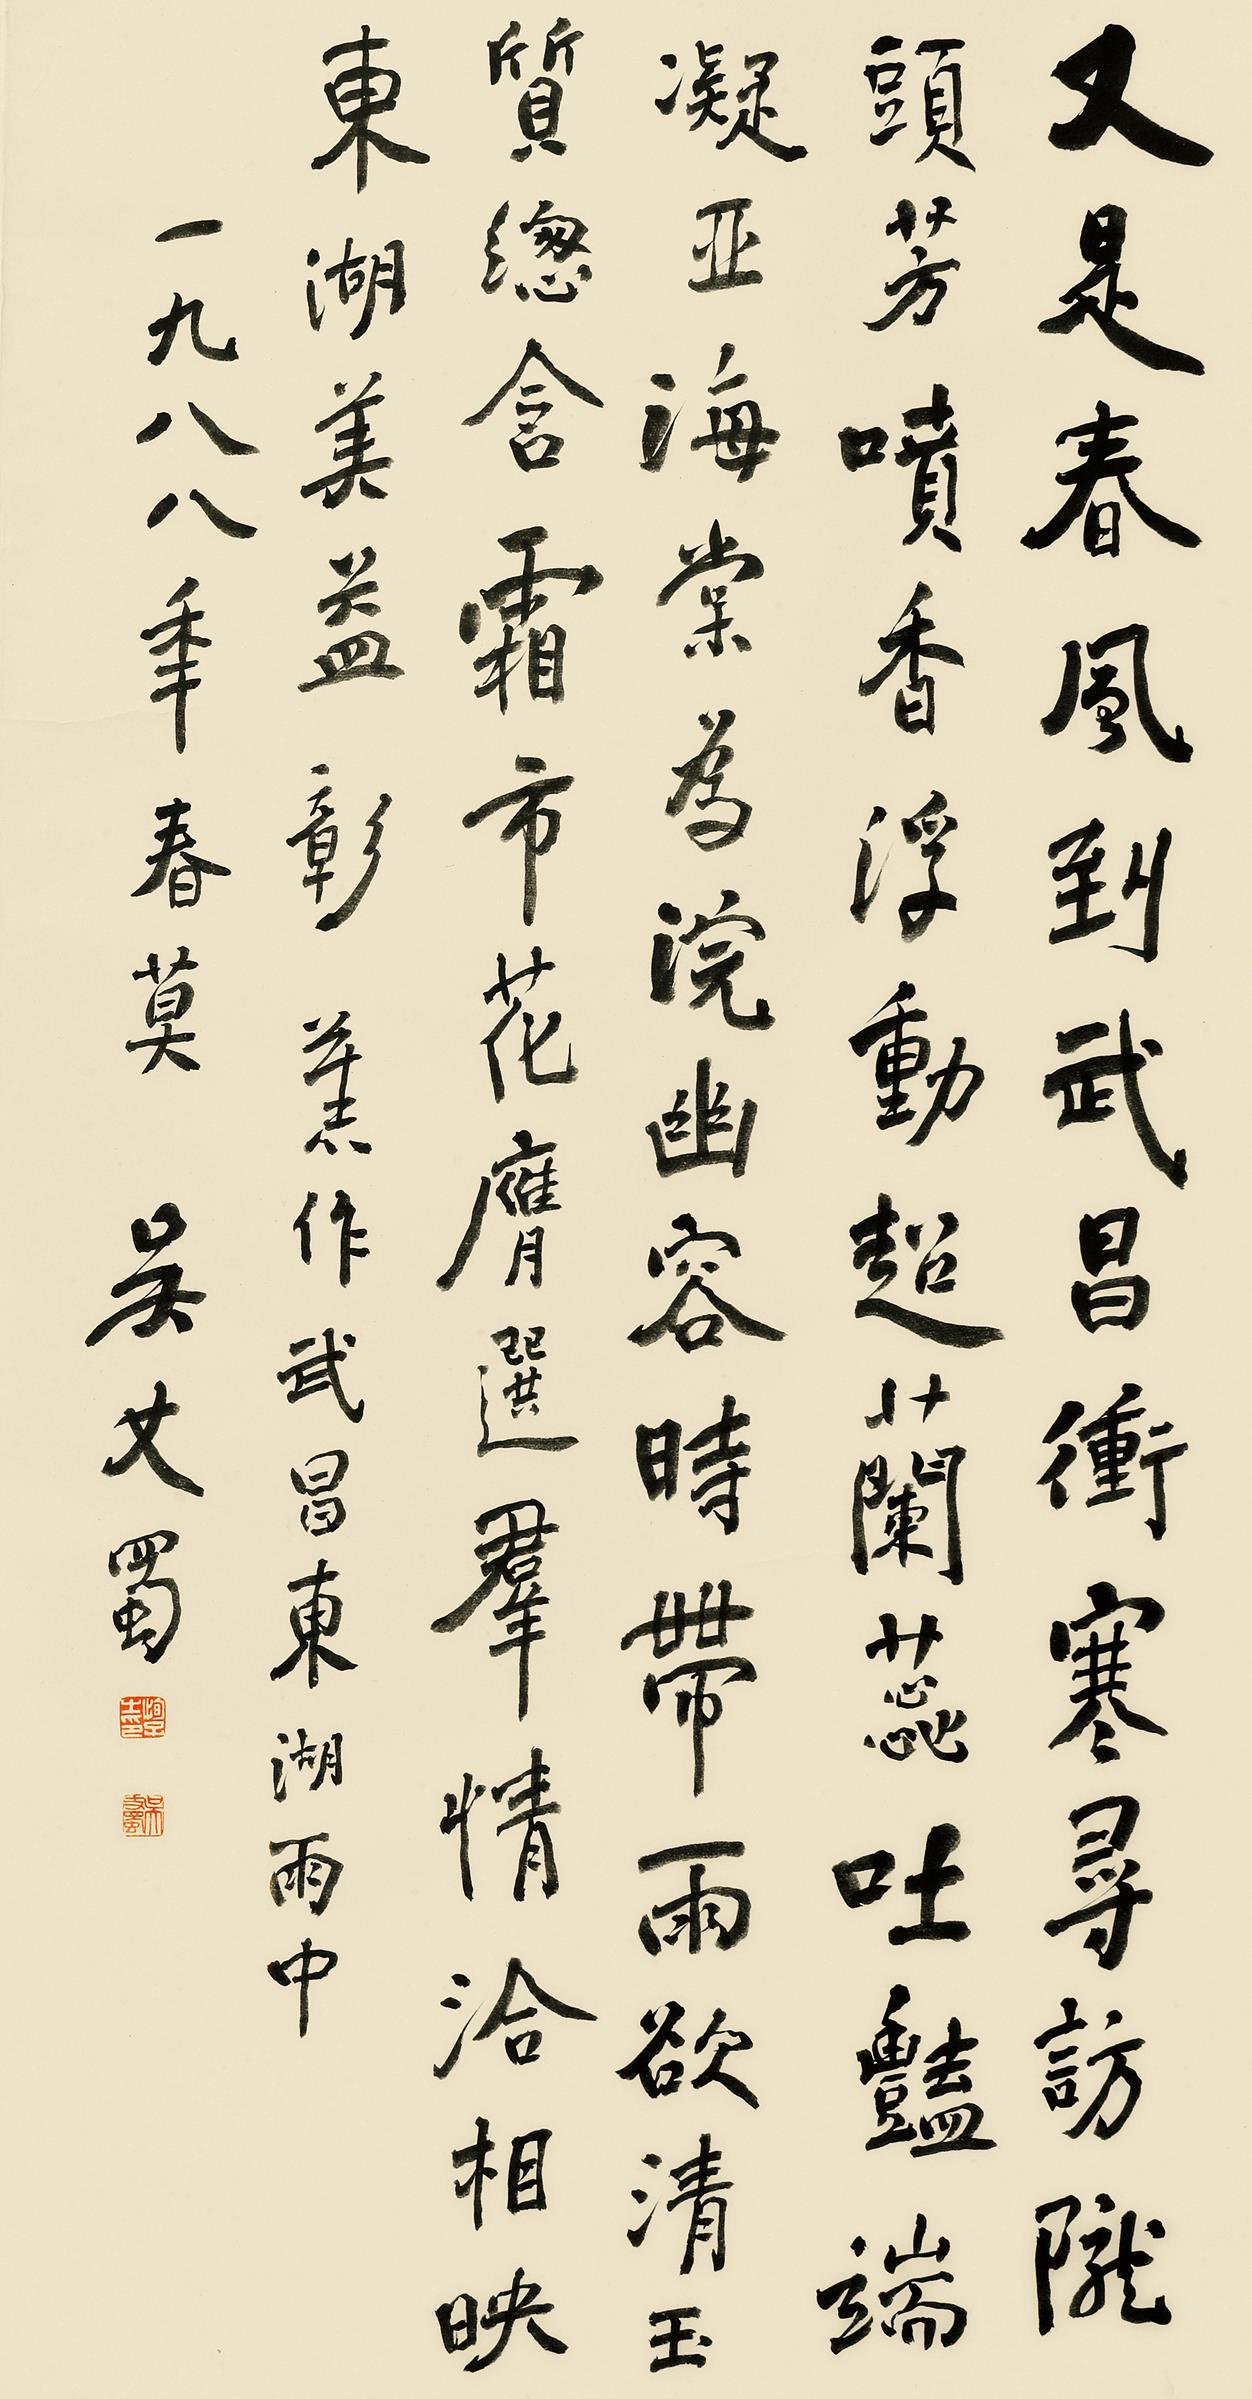 又是春風到武昌衝寒尋訪隴
頭芳噴香浮動超蘭蕊吐豔端
凝亚海棠為浣幽容時帶雨欲清玉
質總含霜市花膺選羣情洽相映
東湖美益彰 舊作武昌東湖雨中
一九八八年春莫 吴丈蜀